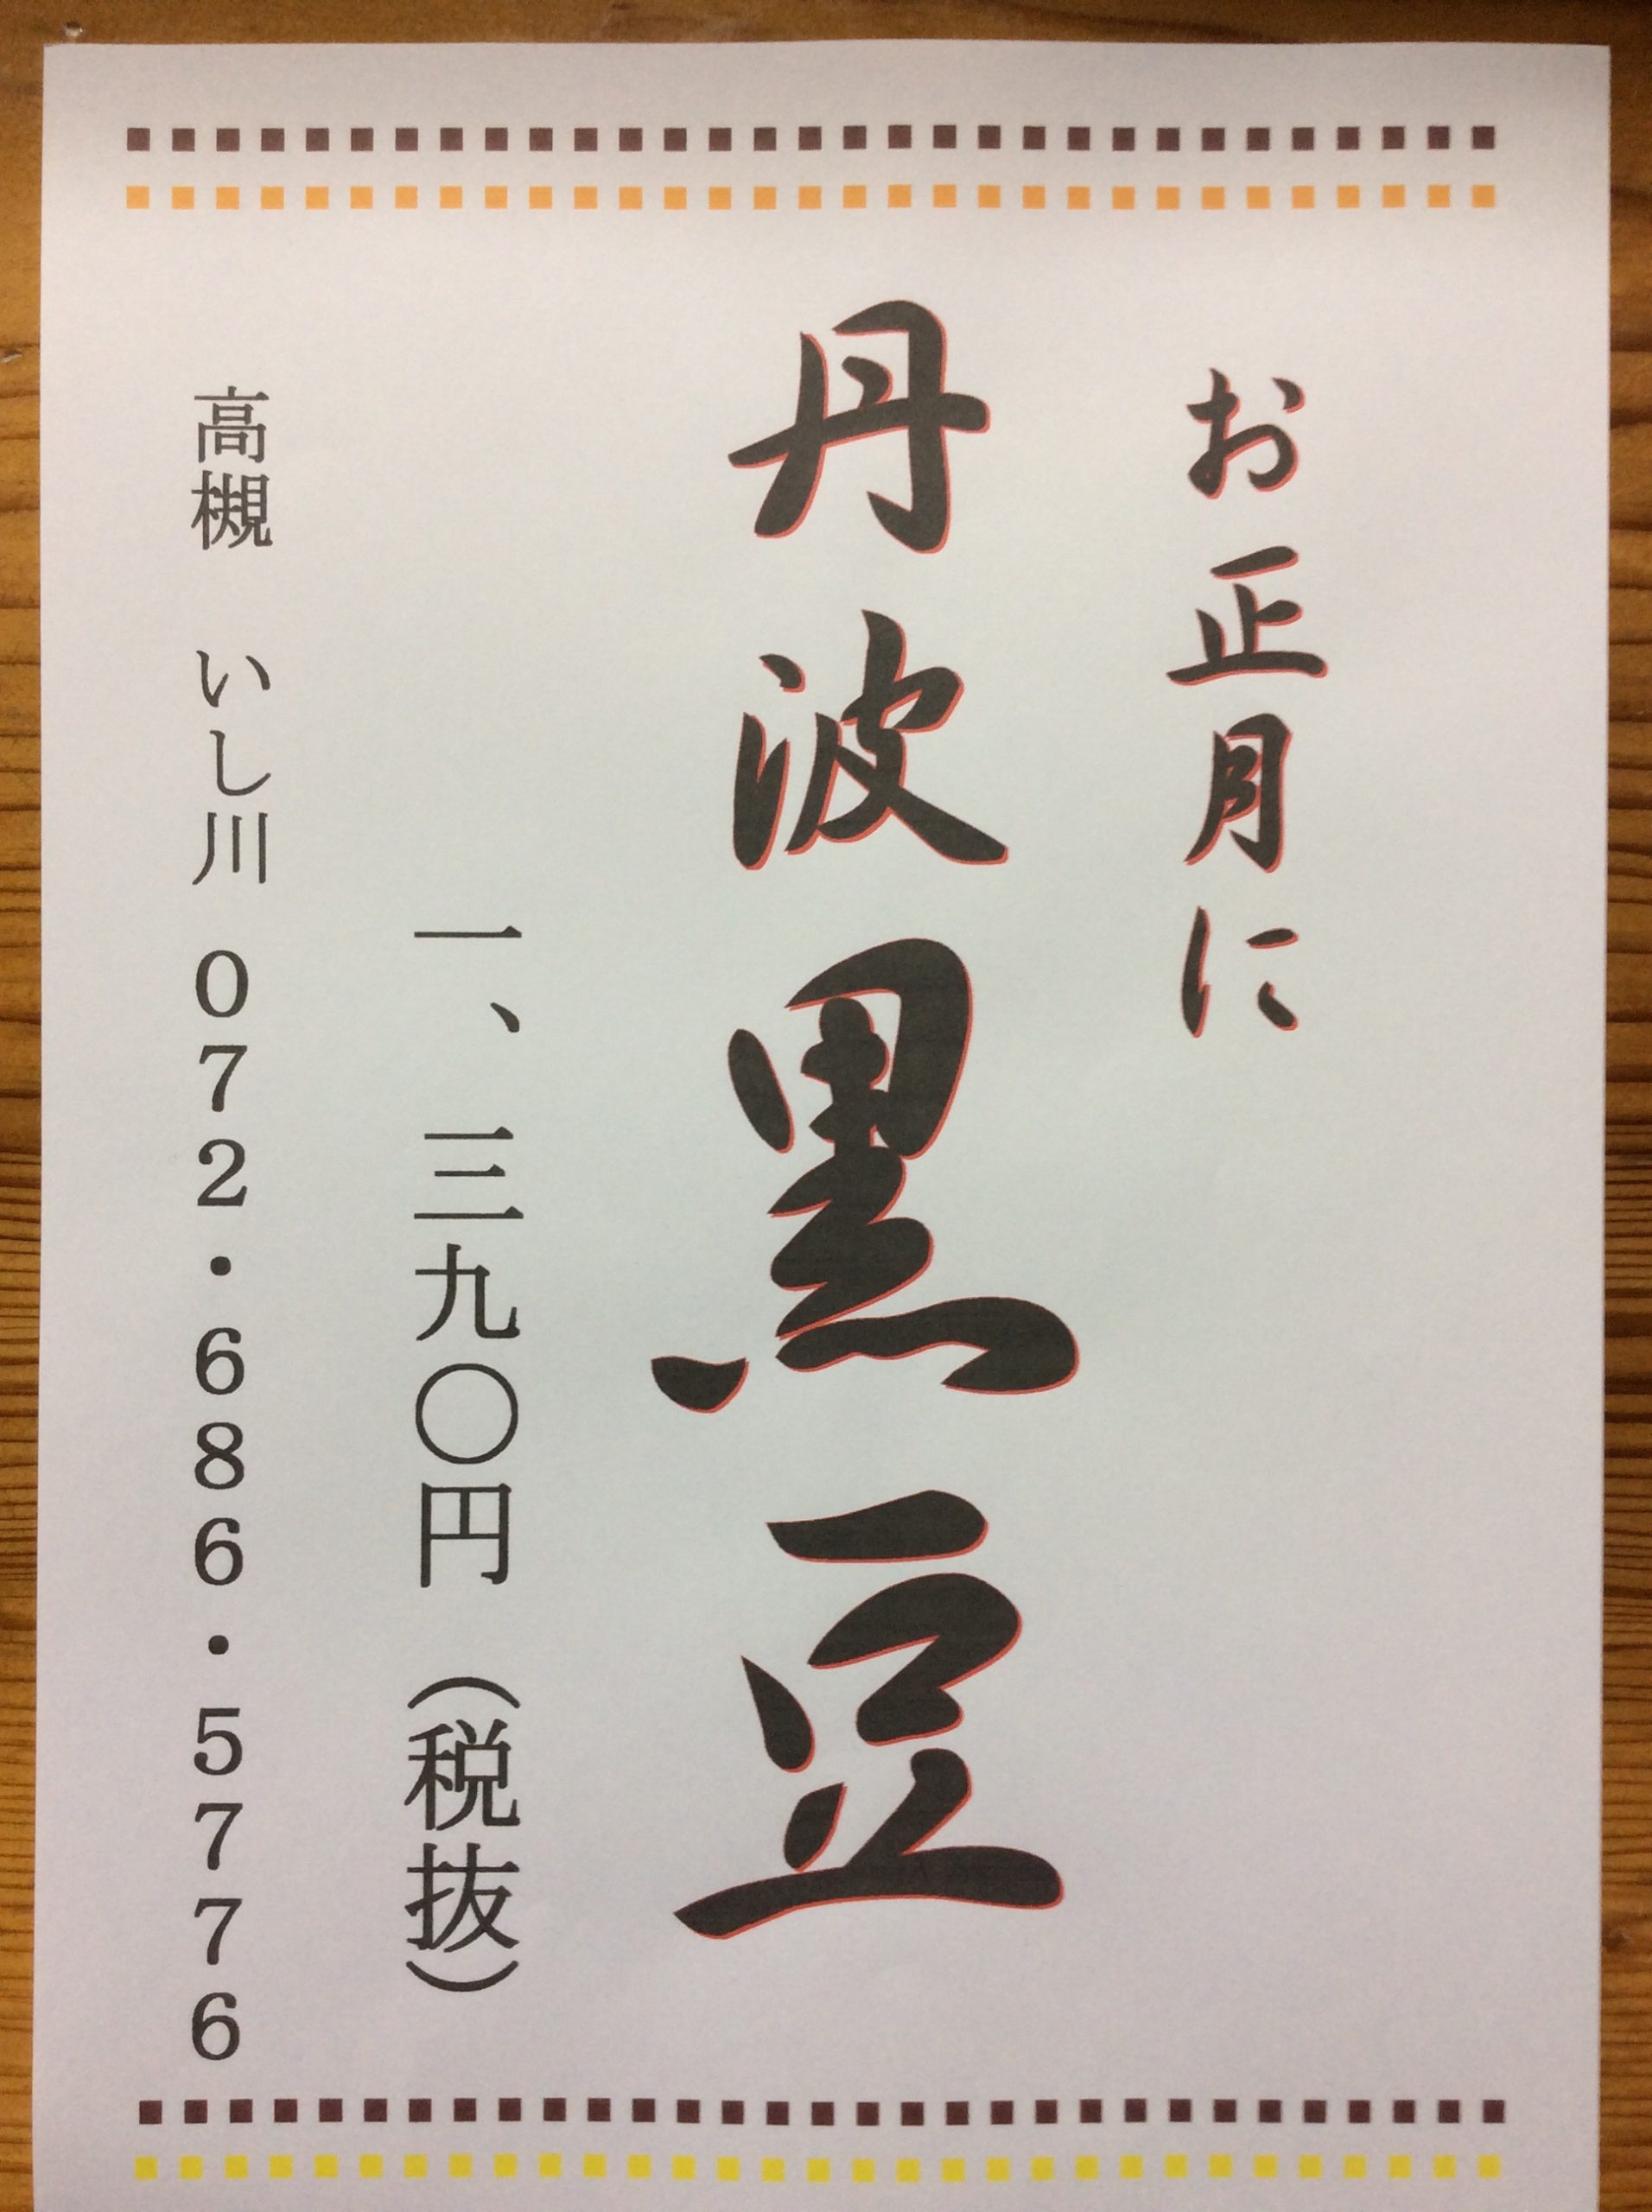 お正月に
丹波黒豆
一、三九〇円（税抜）
高槻　いし川　072・686・5776